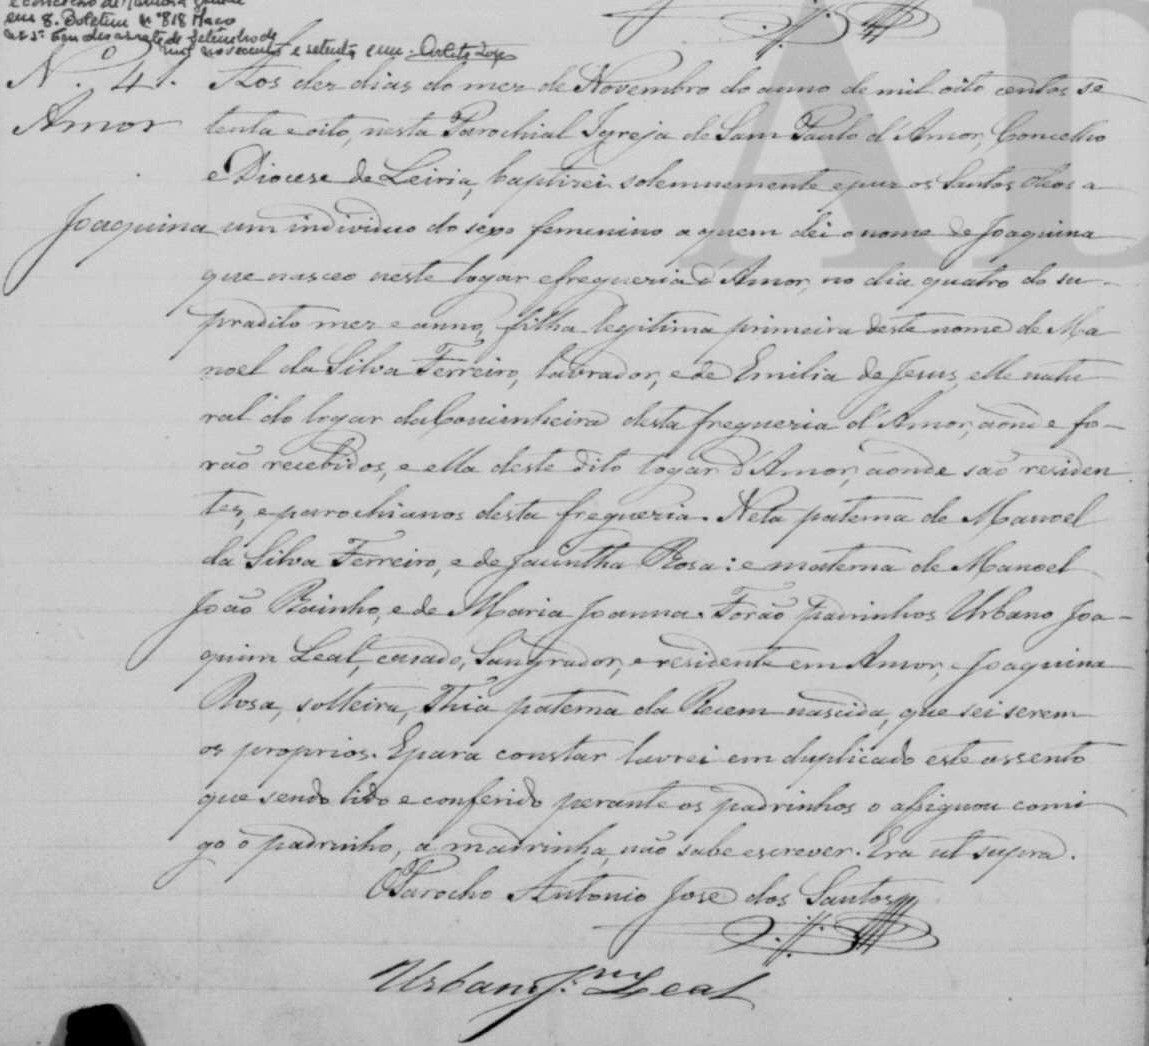 e concelho de
em 8. Boletim nº 818 Maço
em dezassete de Setembro de
mil novecentos e setenta e um.
N.º 41. Aos dez dias do mez de Novembro do anno de mil oito centos se
Amor tenta e oito, nesta Parochial Igreja de Sam Paulo d'Amor, Concelho
e Diocese de Leiria, baptizei solemnemente e puz os Santos Oleos a
Joaquina um individuo do sexo femenino a quem dei o nome de Joaquina
que nasceo neste logar e freguezia d'Amor, no dia quatro do su-
pradito mez e anno, filha legitima primeira deste nome de Ma
noel da Silva Ferreiro, lavrador, e de Emilia de Jesus, elle natu
ral do logar da Coucinheira desta freguezia d'Amor, aonde fo-
rão recebidos, e ella deste dito logar d'Amor, aonde são residen
tes, e parochianos desta freguezia. Neta paterna de Manoel
da Silva Ferreiro, e de Jacintha Rosa: e materna de Manoel
João Rainho, e de Maria Joanna. Forão Padrinhos Urbano Joa-
quim Leal, casado, Sangrador, e residente em Amor, e Joaquina
Rosa, solteira, Thia paterna da Recem nascida, que sei serem
os proprios. E para constar lavrei em duplicado este assento
que sendo lido e conferido perante os padrinhos o assignou comi
go o padrinho, a madrinha não sabe escrever. Era ut supra.
O Parocho Antonio Jose dos Santos
Urbano J.m Leal
AD